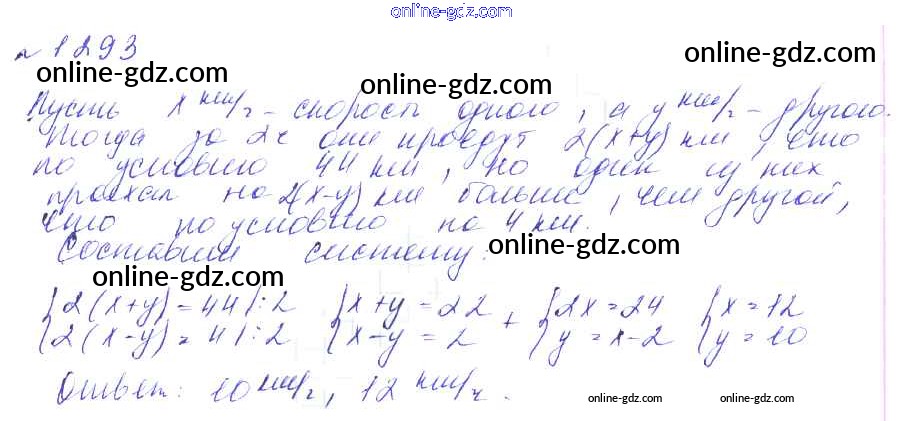 online-gdz.com
№ 1293
online-gdz.com online-gdz.com online-gdz.com
Пусть x км/ч - скорость одного, а y км/ч - другого.
Тогда за 2ч они проедут 2(x+y) км, что
по условию 44 км, но один из них
проехал на 2(x-y) км больше, чем другой,
что по условию на 4 км.
Составим систему:
online-gdz.com online-gdz.com
{2(x+y)=44|:2 {x+y=22 {2x=24 {x=12
{2(x-y)=4|:2 {x-y=2 + {y=x-2 {y=10
Ответ: 10 км/ч, 12 км/ч.
online-gdz.com online-gdz.com